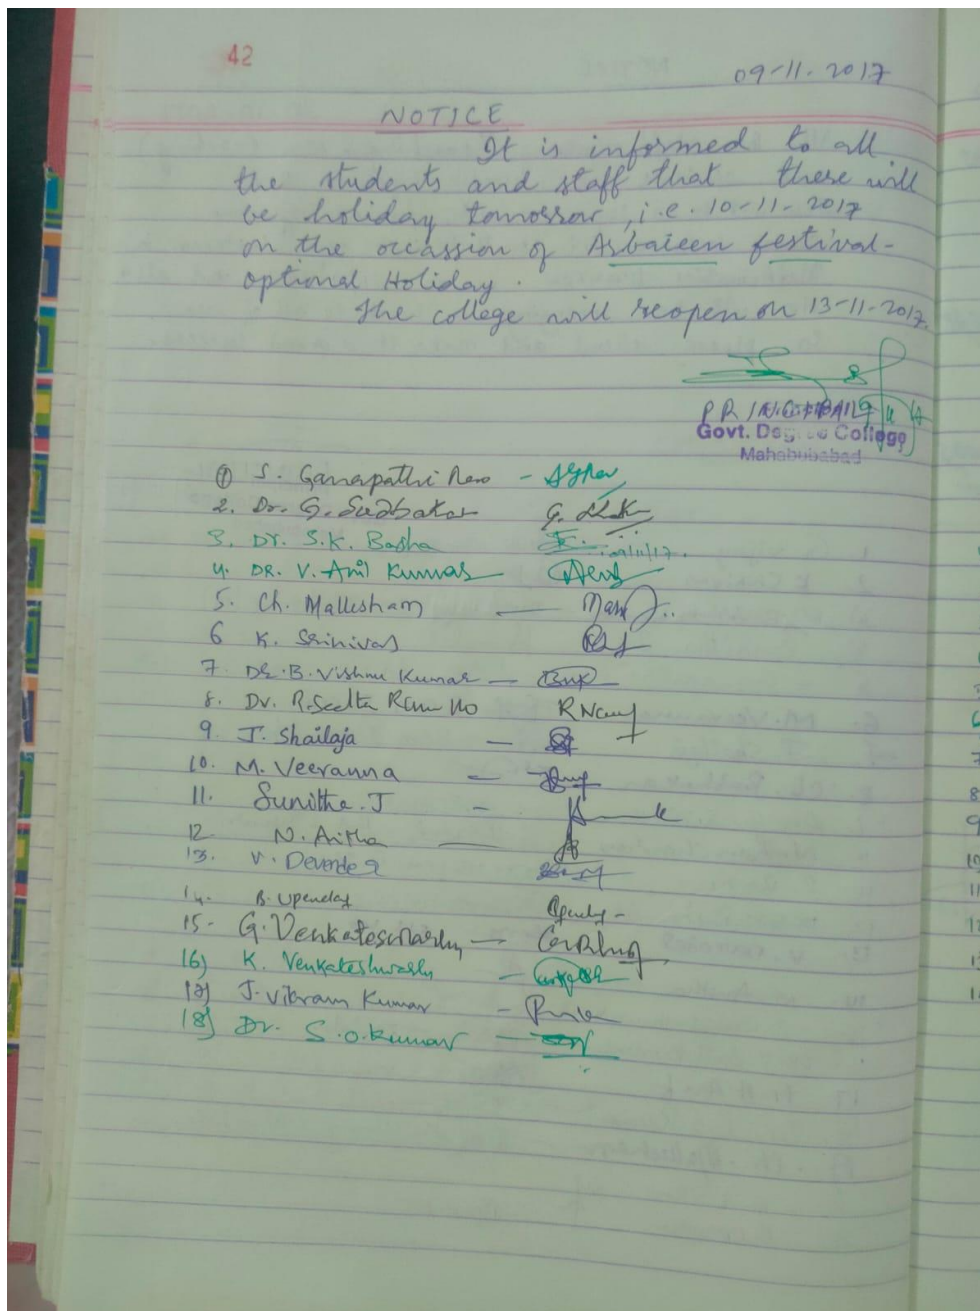 42
09-11-2017
NOTICE
It is informed to all
the students and staff that there will
be holiday tomorrow, i.e. 10-11-2017
on the occassion of Arbaieen festival-
optional Holiday.
The college will reopen on 13-11-2017.
PRINCIPAL
Govt. Degree College
Mahabubabad
① S. Ganapathi Rao -
2. Dr. G. Sudhakar
3. Dr. S.K. Basha 09/11/17.
4. DR. V. Anil Kumar
5. Ch. Mallesham —
6 K. Srinivas
7. DR. B. Vishnu Kumar —
8. Dr. R. Seetha Ram
9. J. Shailaja —
10. M. Veeranna —
11. Sunitha. J -
12 N. Anitha —
13. V. Devender
14. B. Upender
15- G. Venkateshwarlu —
16) K. Venkateshwarlu -
17) J. Vikram Kumar -
18) Dr. S.O. Kumar -
7
8
9
10
11